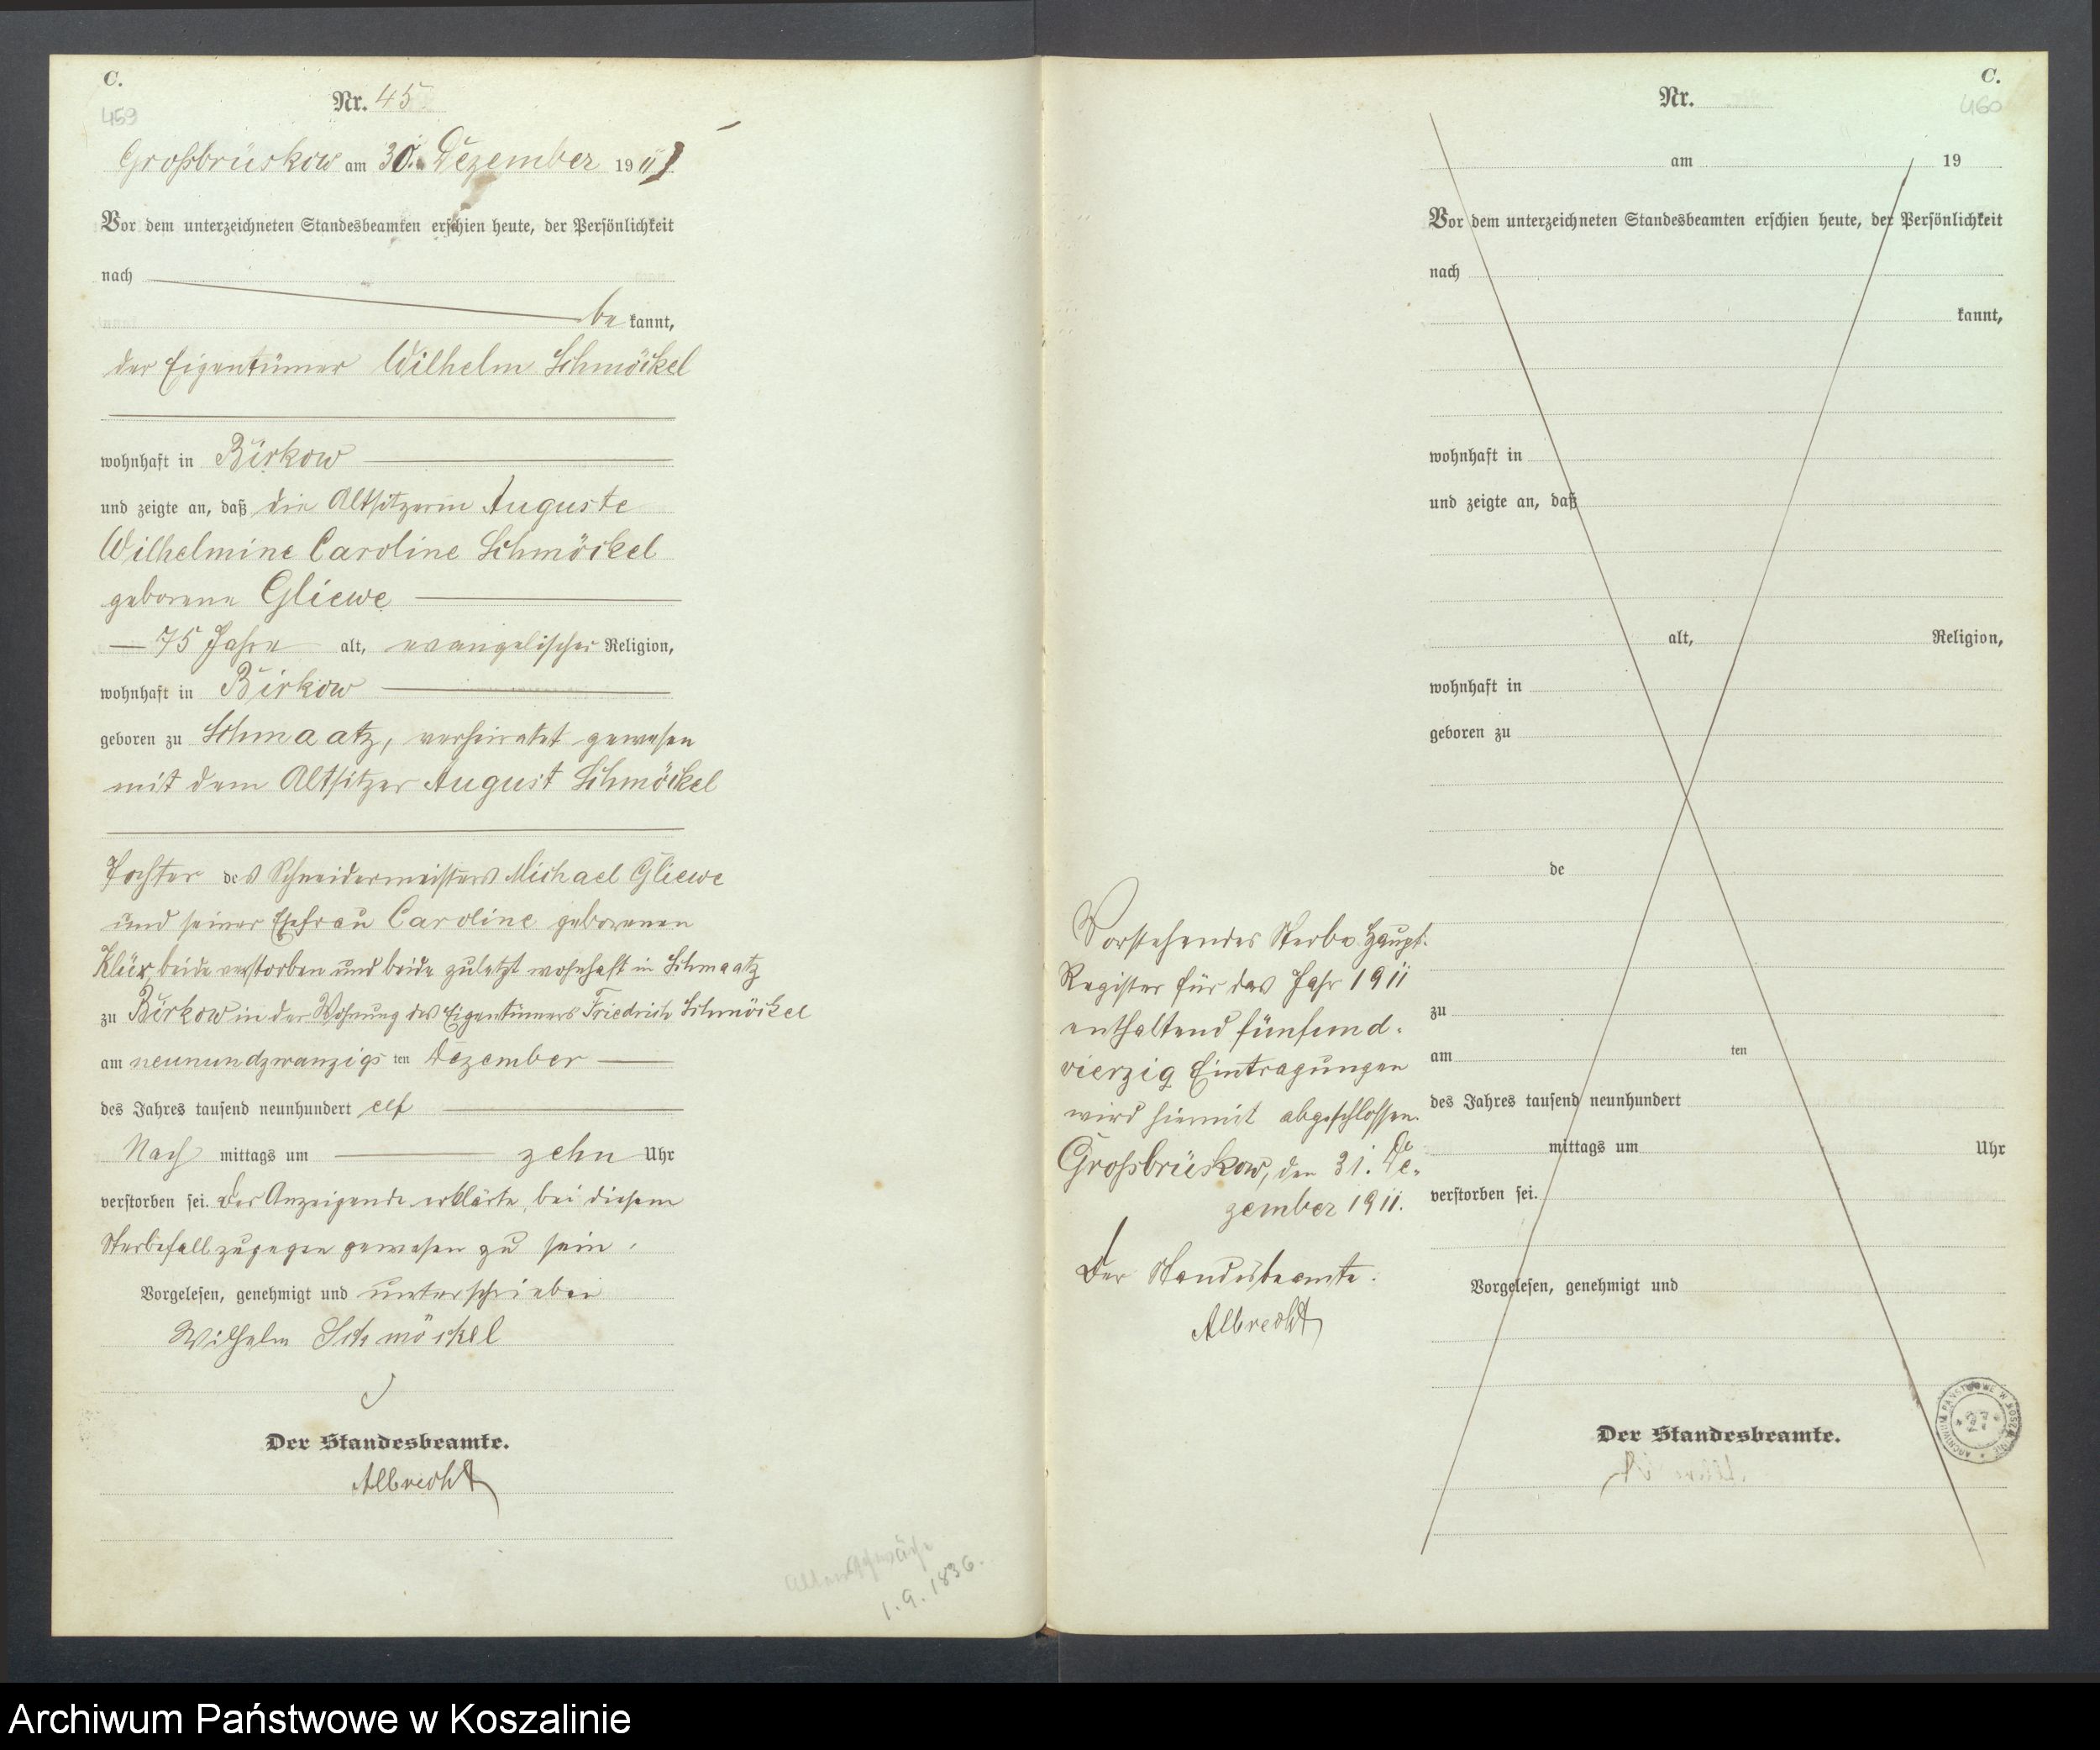 C.
459
Nr. 45
Großbrüskow am 30. Dezember 1911
Vor dem unterzeichneten Standesbeamten erschien heute, der Persönlichkeit
nach
be kannt,
der Eigentümer Wilhelm Schmöckel
wohnhaft in Birkow
und zeigte an, daß die Altsitzerin Auguste
Wilhelmine Caroline Schmöckel
geborene Gliewe
75 Jahre alt, evangelischer Religion,
wohnhaft in Birkow
geboren zu Schmaatz, verheiratet gewesen
mit dem Altsitzer August Schmöckel
Tochter des Schneidermeisters Michael Gliewe
und seiner Ehefrau Caroline geborenen
beide verstorben und beide zuletzt wohnhaft in Schmaatz
zu Birkow in der Wohnung des Eigentümers Friedrich Schmöckel
am neunundzwanzigs ten Dezember
des Jahres tausend neunhundert elf
Nach mittags um zehn Uhr
verstorben sei. Der Anzeigende erklärte, bei diesem
Sterbefall zugegen gewesen zu sein.
Vorgelesen, genehmigt und unterschrieben
Wilhelm Schmöckel
Der Standesbeamte.
Albrecht
1.9.1836.
Vorstehendes Sterbe Haupt-
Register für das Jahr 1911
enthaltend fünfund-
vierzig Eintragungen
wird hiermit abgeschlossen.
Großbrüskow, den 31. De-
zember 1911.
Der Standesbeamte.
Albrecht
C.
460
Nr.
am 19
Vor dem unterzeichneten Standesbeamten erschien heute, der Persönlichkeit
nach
kannt,
wohnhaft in
und zeigte an, daß
alt, Religion,
wohnhaft in
geboren zu
de
zu
am ten
des Jahres tausend neunhundert
mittags um Uhr
verstorben sei.
Vorgelesen, genehmigt und
Der Standesbeamte.
Archiwum Państwowe w Koszalinie